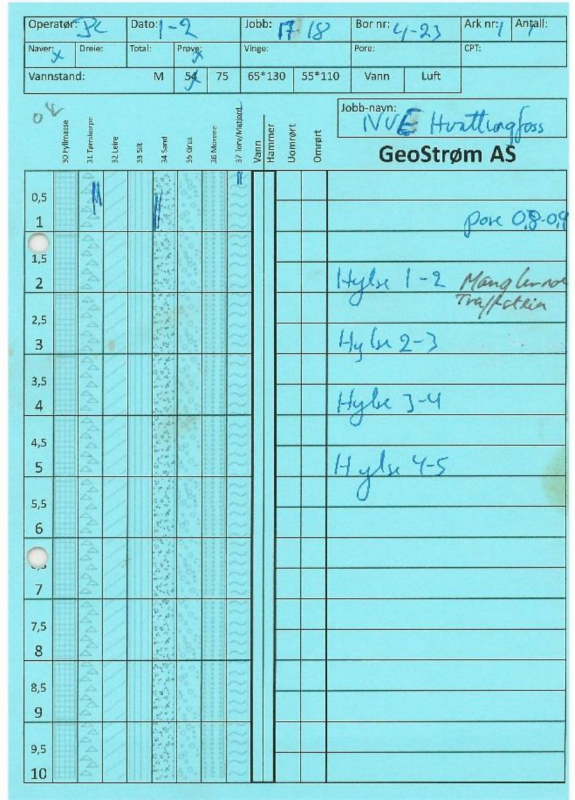 Operatør: Dato: 1-2 Jobb: 17 18 Bor nr: 4-23 Ark nr: 1 Antall: 1
Naver: x Dreie: Total: Prøve: x Vinge: Pore: CPT:
Vannstand: M 54 75 65*130 55*110 Vann Luft
OK
30 Fyllmasse
31 Tørrskorpe
32 Leire
33 Silt
34 Sand
35 Grus
36 Morene
37 Torv/Matjord
Vann
Hammer
Uomrørt
Omrørt
Jobb-navn:
NVE Hvittingfoss
GeoStrøm AS
0,5
1 pose 0,8-0,9
1,5
2 Hylse 1-2 Mangler noe
Traff stein
2,5
3 Hylse 2-3
3,5
4 Hylse 3-4
4,5
5 Hylse 4-5
5,5
6
7
7,5
8
8,5
9
9,5
10